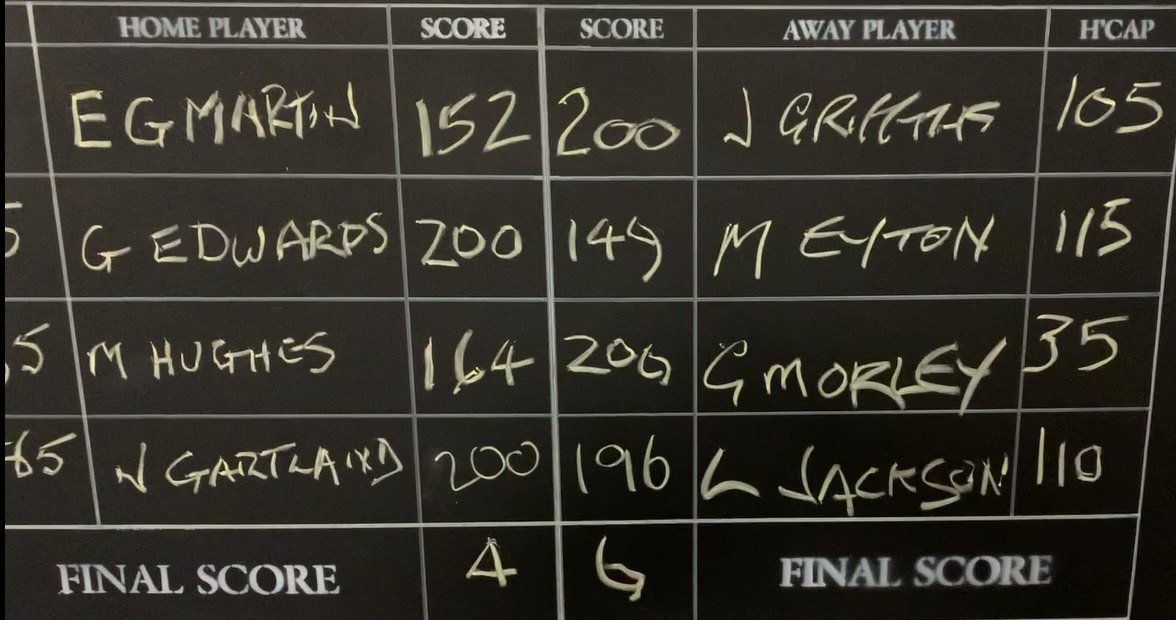 HOME PLAYER SCORE SCORE AWAY PLAYER H'CAP
E G MARTIN 152 200 J GRIFFITHS 105
5 G EDWARDS 200 149 M EYTON 115
5 M HUGHES 164 200 G MORLEY 35
65 J GARTLAND 200 196 L JACKSON 110
FINAL SCORE 4 6 FINAL SCORE